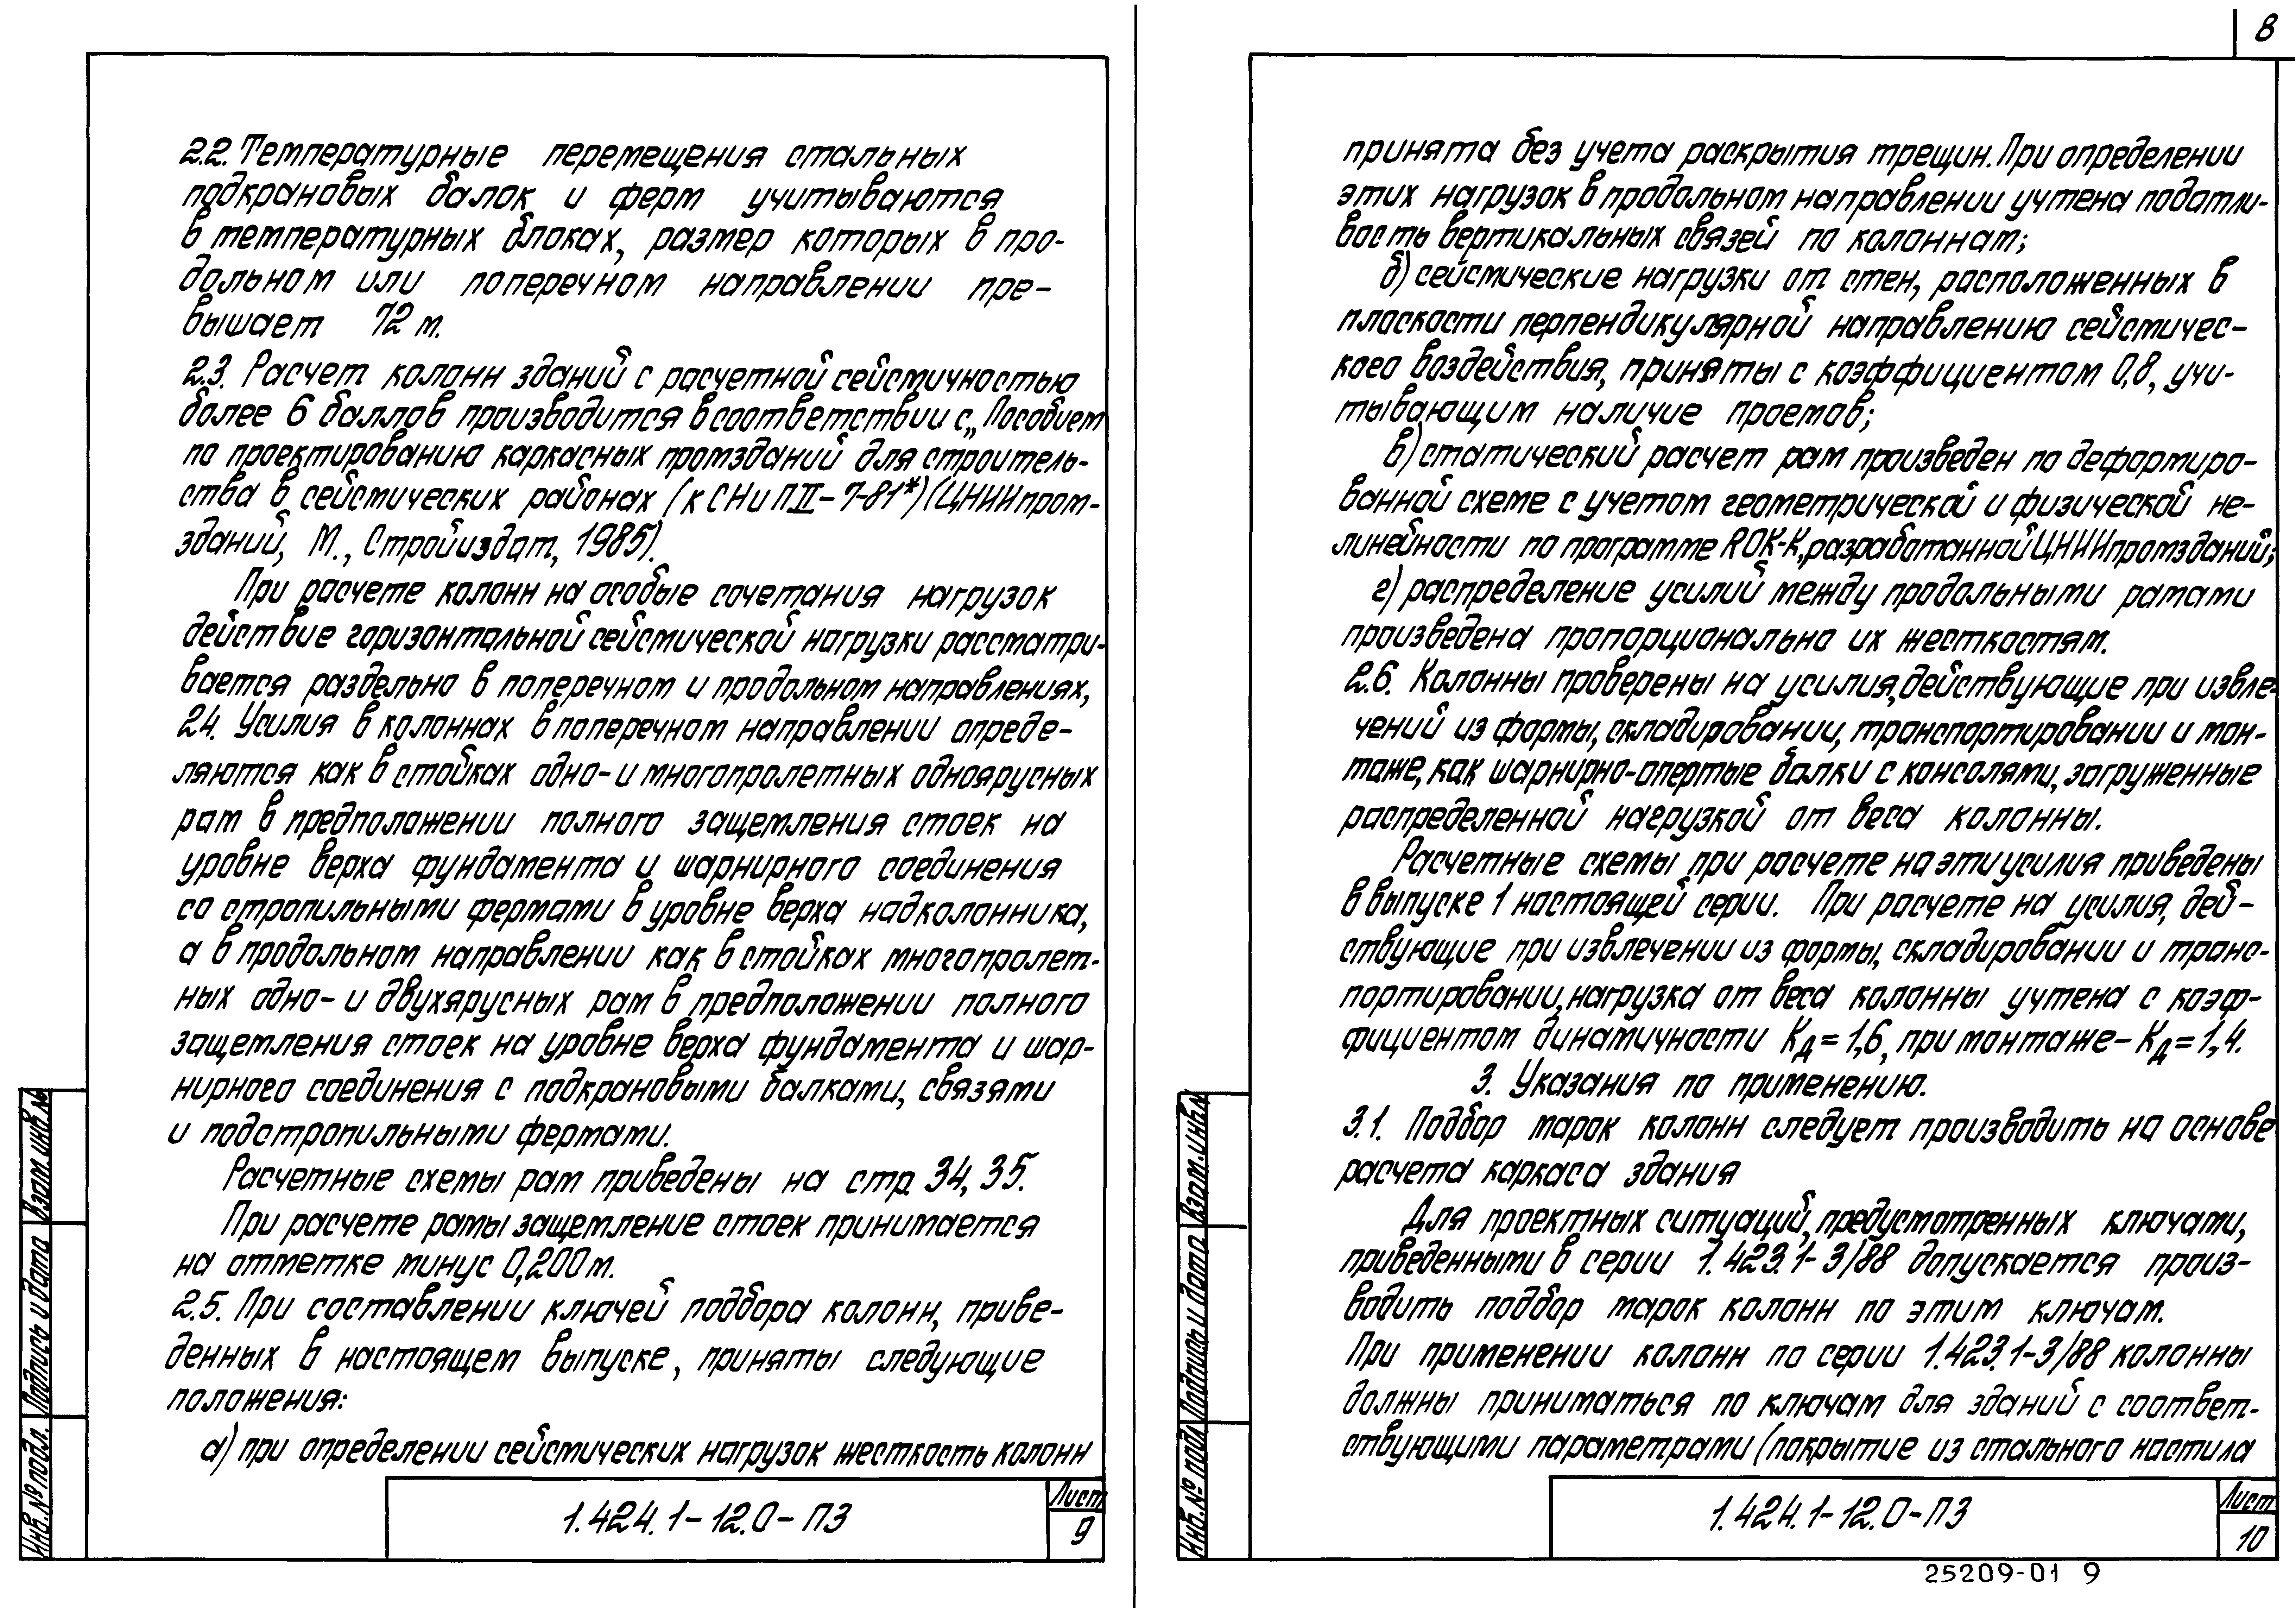 8
2.2. Температурные перемещения стальных
подкрановых балок и ферм учитываются
в температурных блоках, размер которых в про-
дольном или поперечном направлении пре-
вышает 72 м.
2.3. Расчет колонн зданий с расчетной сейсмичностью
более 6 баллов производится в соответствии с „Пособием
по проектированию каркасных промзданий для строитель-
ства в сейсмических районах (к СНиП II-7-81*) (ЦНИИпром-
зданий, М., Стройиздат, 1985).
При расчете колонн на особые сочетания нагрузок
действие горизонтальной сейсмической нагрузки рассматри-
вается раздельно в поперечном и продольном направлениях,
2.4. Усилия в колоннах в поперечном направлении опреде-
ляются как в стойках одно- и многопролетных одноярусных
рам в предположении полного защемления стоек на
уровне верха фундамента и шарнирного соединения
со стропильными фермами в уровне верха надколонника,
а в продольном направлении как в стойках многопролет-
ных одно- и двухярусных рам в предположении полного
защемления стоек на уровне верха фундамента и шар-
нирного соединения с подкрановыми балками, связями
и подстропильными фермами.
Расчетные схемы рам приведены на стр. 34, 35.
При расчете рамы защемление стоек принимается
на отметке минус 0,200 м.
2.5. При составлении ключей подбора колонн, приве-
денных в настоящем выпуске, приняты следующие
положения:
а) при определении сейсмических нагрузок жесткость колонн
Взам. инв. №
Подпись и дата
Инв. № подл.
1.424.1-12.0-ПЗ
Лист
9
принята без учета раскрытия трещин. При определении
этих нагрузок в продольном направлении учтена податли-
вость вертикальных связей по колоннам;
б) сейсмические нагрузки от стен, расположенных в
плоскости перпендикулярной направлению сейсмичес-
кого воздействия, приняты с коэффициентом 0,8, учи-
тывающим наличие проемов;
в) статический расчет рам произведен по деформиро-
ванной схеме с учетом геометрической и физической не-
линейности по программе ROK-K, разработанной ЦНИИпромзданий;
г) распределение усилий между продольными рамами
произведена пропорционально их жесткостям.
2.6. Колонны проверены на усилия, действующие при извле-
чений из формы, складировании, транспортировании и мон-
таже, как шарнирно-опертые балки с консолями, загруженные
распределенной нагрузкой от веса колонны.
Расчетные схемы при расчете на эти усилия приведены
в выпуске 1 настоящей серии. При расчете на усилия, дей-
ствующие при извлечении из формы, складировании и транс-
портировании, нагрузка от веса колонны учтена с коэф-
фициентом динамичности Kд = 1,6, при монтаже - Kд = 1,4.
3. Указания по применению.
3.1. Подбор марок колонн следует производить на основе
расчета каркаса здания
Для проектных ситуаций, предусмотренных ключами,
приведенными в серии 1.423.1-3/88 допускается произ-
водить подбор марок колонн по этим ключам.
При применении колонн по серии 1.423.1-3/88 колонны
должны приниматься по ключам для зданий с соответ-
ствующими параметрами (покрытие из стального настила
Взам. инв. №
Подпись и дата
Инв. № подл
1.424.1-12.0-ПЗ
Лист
10
25209-01 9